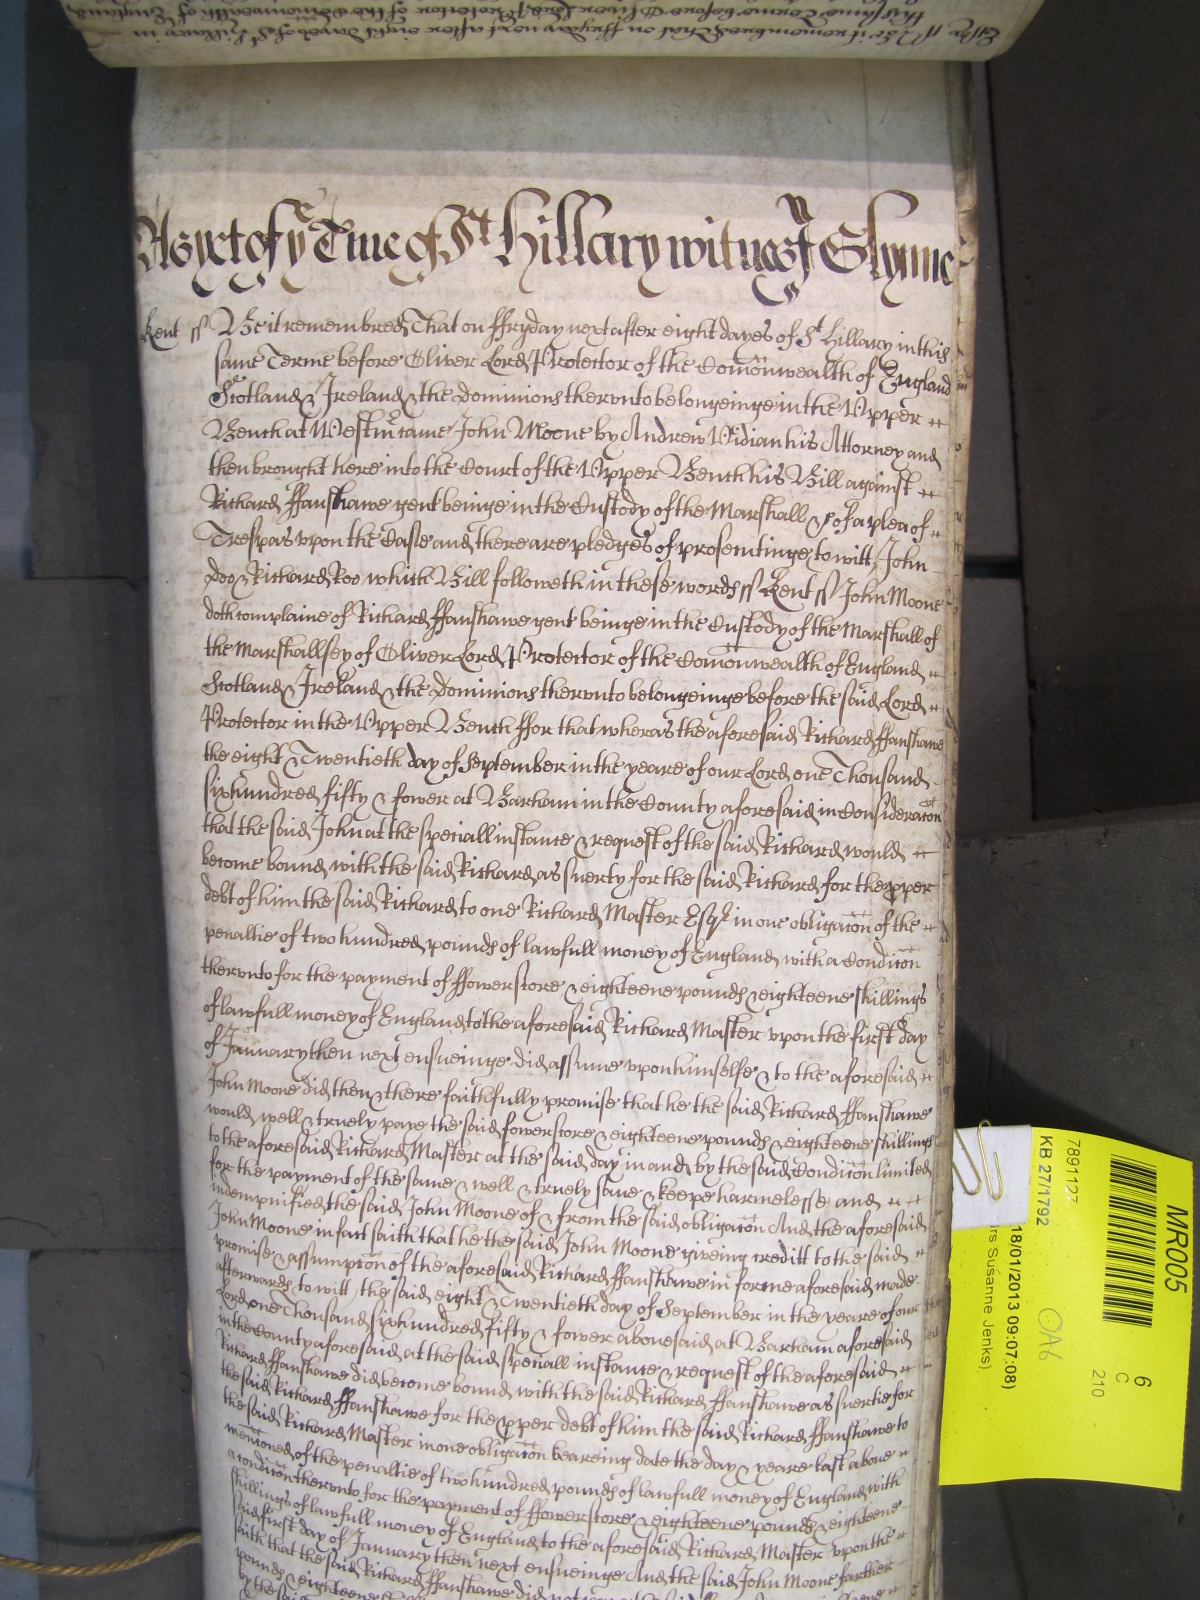 this same Terme before Oliver Lord Protector of the Comonwealth of England
Be it remembred That on ffryday next after eight dayes of St Hillary in
As yet of ye Tme of St Hillary witnes J Glynne
Kent ss Be it remembred That on ffryday next after eight dayes of St Hillary in this
same Terme before Oliver Lord Protector of the Comonwealth of England
Scotland & Ireland & the dominions therunto belongeinge in the Upper
Bench at Westmr came John Moone by Andrew Vidian his Attorney and
then brought here into the Court of the Upper Bench his Bill against
Richard ffanshawe gent beinge in the Custody of the Marshall &c of a plea of
Trespas upon the Case and there are pledges of prosecutinge to witt John
Doo & Richard Roo which Bill followeth in these words ss Kent ss John Moone
doth complaine of Richard ffanshawe gent beinge in the Custody of the Marshall of
the Marshallsey of Oliver Lord Protector of the Comonwealth of England
Scotland & Ireland & the dominions therunto belongeinge before the said Lord
Protector in the Upper Bench ffor that wheras the aforesaid Richard ffanshawe
the eight & Twentieth day of September in the yeare of our Lord one Thousand
six hundred fifty & fower at Barham in the County aforesaid in Consideracon
that the said John at the speciall instance & request of the said Richard would
become bound with the said Richard as suerty for the said Richard for the pper
debt of him the said Richard to one Richard Master Esqr in one obligacon of the
penaltie of two hundred pounds of lawfull money of England with a Condicon
therunto for the payment of ffowerscore & eighteene pounds & eighteene shillings
of lawfull money of England to the aforesaid Richard Master upon the first day
of January then next ensueinge did assume upon himselfe & to the aforesaid
John Moone did then & there faithfully promise that he the said Richard ffanshawe
would well & truely paye the said fowerscore & eighteene pounds & eighteene shillings
to the aforesaid Richard Master at the said day in and by the said Condicon limited
for the payment of the same & well & truely save & keepe harmelesse and
indempnified the said John Moone of & from the said obligacon And the aforesaid
John Moone in fact saith that he the said John Moone giveing creditt to the said
promise & assumpcon of the aforesaid Richard ffanshawe in forme aforesaid made
afterwards to witt the said eight & Twentieth day of September in the yeare of our
Lord one Thousand six hundred fifty & fower abovesaid at Barham aforesaid
in the County aforesaid at the said speciall instance & request of the aforesaid
Richard ffanshawe did become bound with the said Richard ffanshawe as suertie for
the said Richard ffanshawe for the pper debt of him the said Richard ffanshawe to
the said Richard Master in one obligacon beareing date the day & yeare last above
mencioned of the penaltie of two hundred pounds of lawfull money of England with
a condicon therunto for the payment of ffowerscore & eighteene pounds & eighteene
shillings of lawfull money of England to the aforesaid Richard Master upon the
said first day of January then next ensueinge And the said John Moone farther
saith that the said Richard ffanshawe did not
pounds & eighteene
by the said
MR005
6
C
210
7891127
KB 27/1792
18/01/2013 09:07:08)
rs Susanne Jenks)
OA6